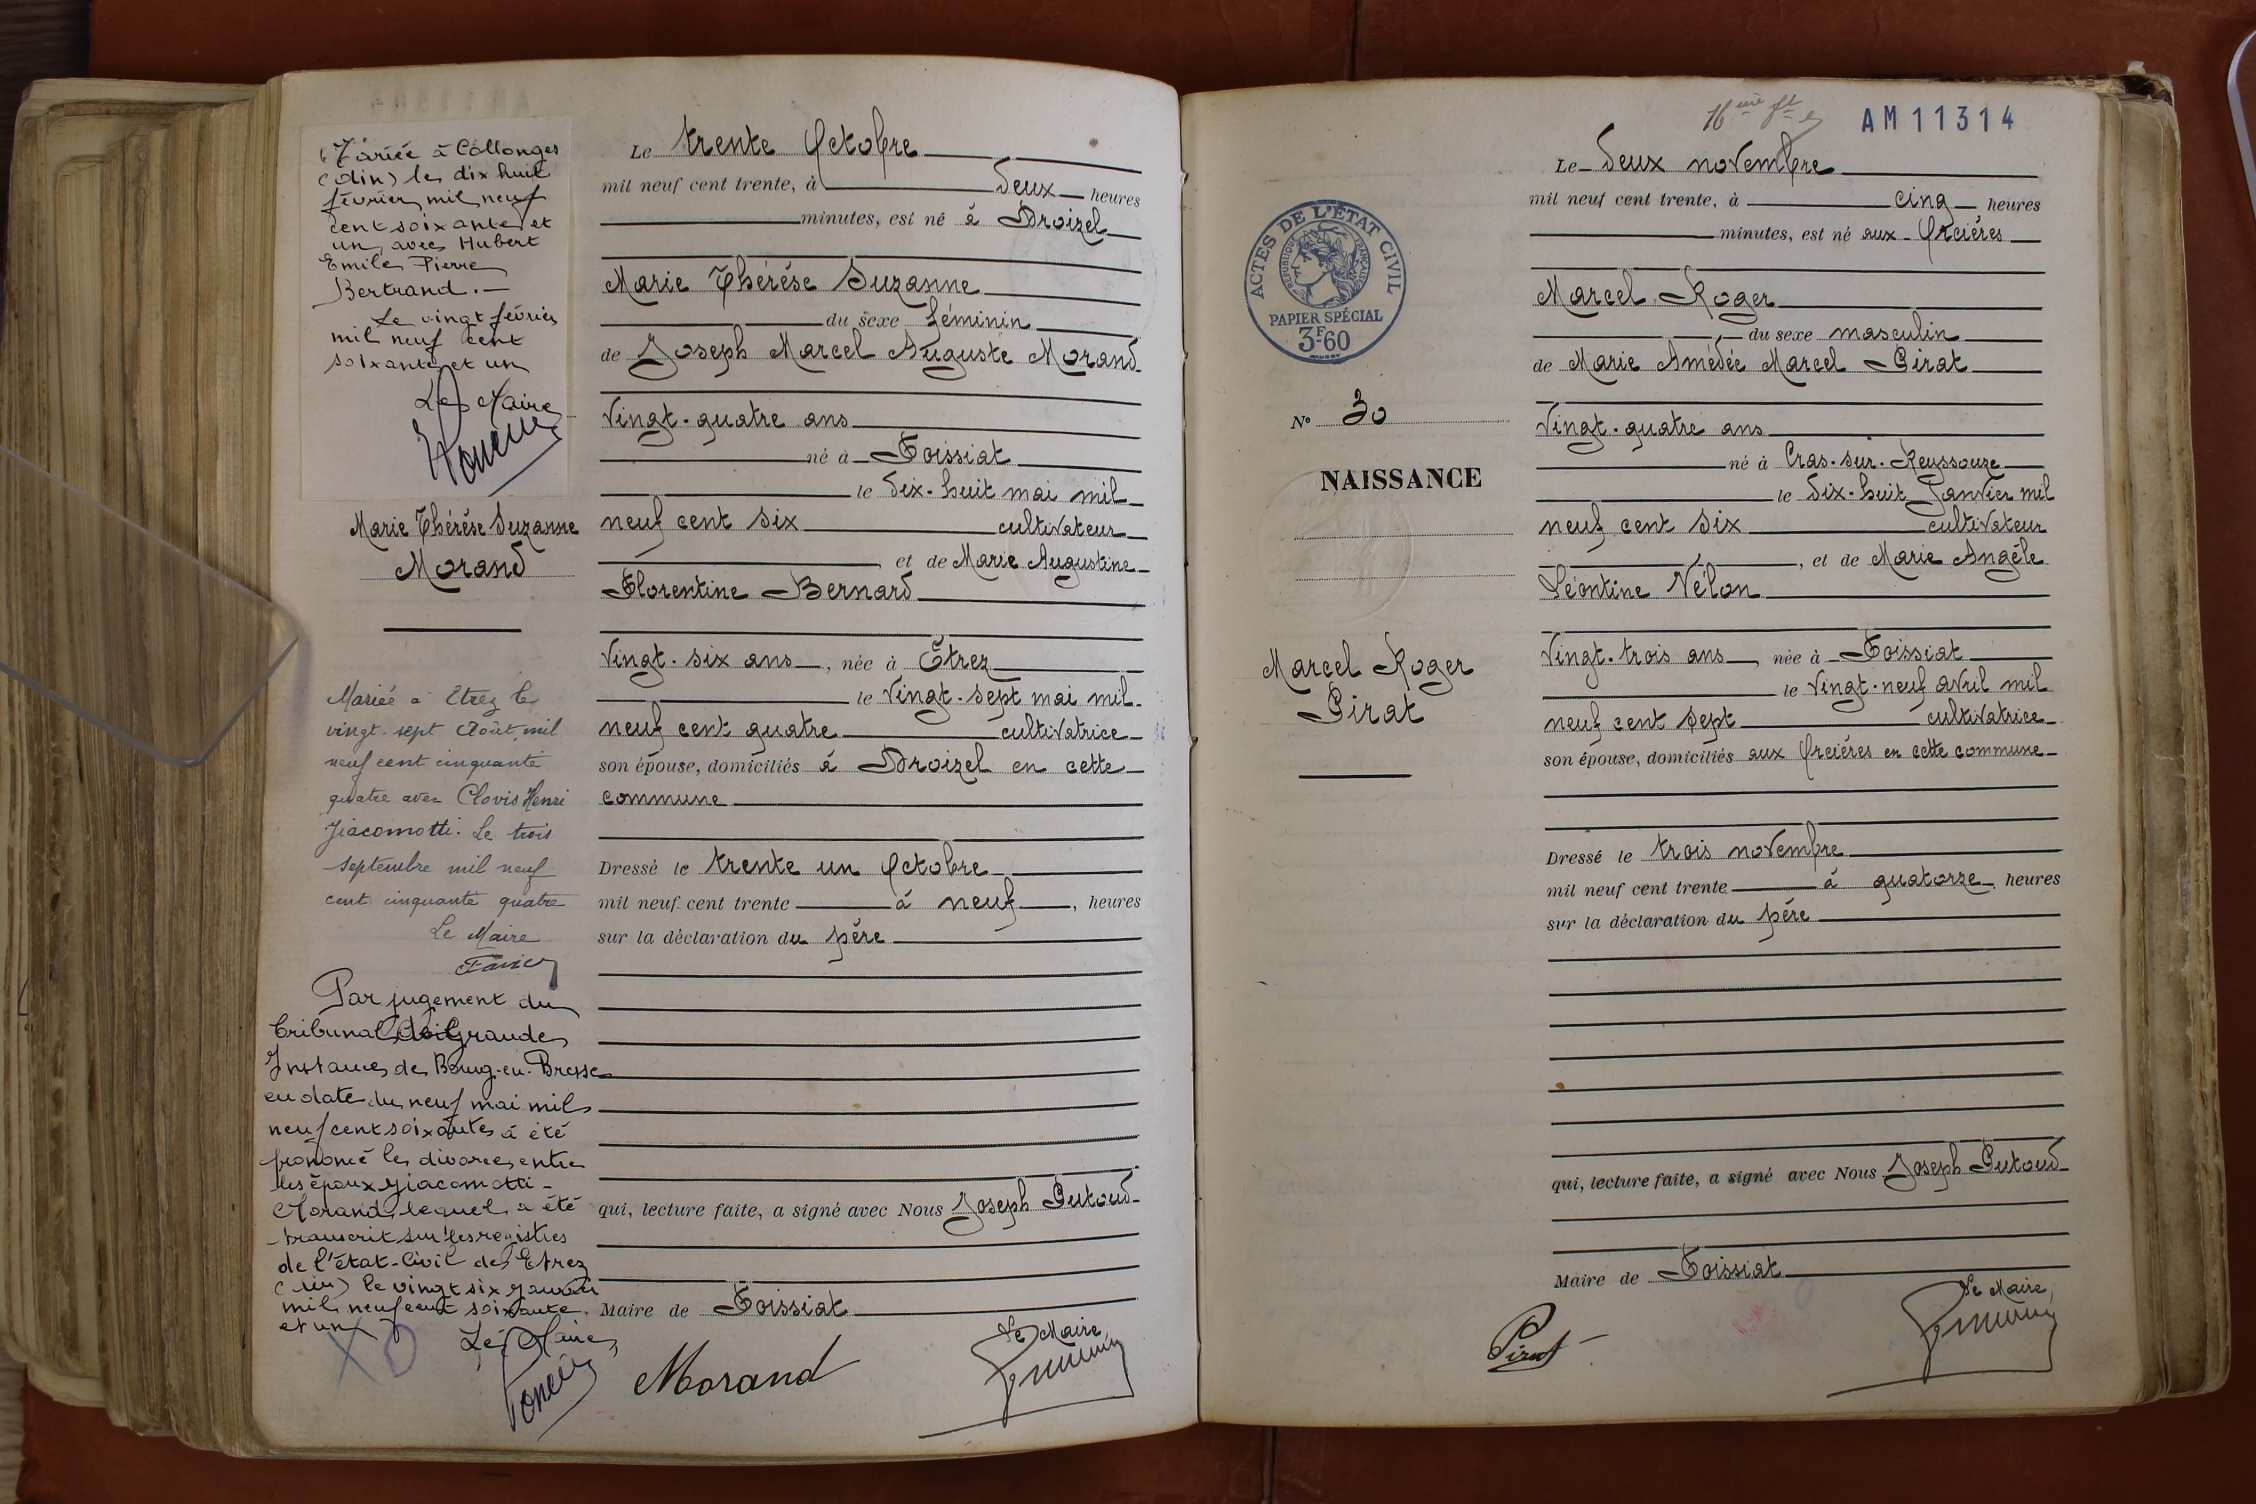 Mariée à Collonges
(Ain) le dix huit
février mil neuf
cent soixante et
un avec Hubert
Emile Pierre
Bertrand. —
Le vingt février
mil neuf cent
soixante et un
Le Maire
Marie Thérèse Suzanne
Morand
Mariée à Etrez le
vingt-sept Août mil
neuf cent cinquante
quatre avec Clovis Henri
Giacomotti. Le trois
septembre mil neuf
cent cinquante quatre
Le Maire
Par jugement du
Tribunal de Grande
Instance de Bourg-en-Bresse
en date du neuf mai mil
neuf cent soixante a été
prononcé le divorce entre
les époux Giacomotti-
Morand, lequel a été
transcrit sur les registres
de l'état-Civil de Etrez
(Ain) le vingt six janvier
mil neuf cent soixante
et un
Le Maire
Le trente Octobre
mil neuf cent trente, à deux heures
minutes, est né à Droizel
Marie Thérèse Suzanne
du sexe féminin
de Joseph Marcel Auguste Morand
vingt-quatre ans
né à Foissiat
le dix-huit mai mil
neuf cent six cultivateur
et de Marie Augustine
Florentine Bernard
vingt-six ans, née à Étrez
le vingt-sept mai mil
neuf cent quatre cultivatrice
son épouse, domiciliés à Droizel en cette
commune
Dressé le trente un Octobre
mil neuf cent trente à neuf, heures
sur la déclaration du père
qui, lecture faite, a signé avec Nous Joseph Putoud
Maire de Foissiat
Le Maire,
Morand
AM11314
ACTES DE L'ÉTAT CIVIL
RÉPUBLIQUE FRANÇAISE
PAPIER SPÉCIAL
3F60
No 30
NAISSANCE
Marcel Roger
Pirat
Le deux novembre
mil neuf cent trente, à cinq heures
minutes, est né aux Orcières
Marcel Roger
du sexe masculin
de Marie Amédée Marcel Pirat
vingt-quatre ans
né à Cras-sur-Reyssouze
le dix-huit Janvier mil
neuf cent six cultivateur
, et de Marie Angèle
Léontine Vélon
vingt-trois ans, née à Foissiat
le vingt-neuf avril mil
neuf cent sept cultivatrice
son épouse, domiciliés aux Orcières en cette commune
Dressé le trois novembre
mil neuf cent trente à quatorze heures
sur la déclaration du père
qui, lecture faite, a signé avec Nous Joseph Putoud
Maire de Foissiat
Le Maire,
Pirat